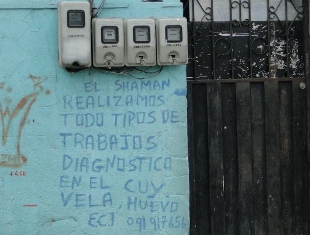 EL SHAMAN
REALIZAMOS
TODO TIPOS DE
TRABAJOS
DIAGNOSTICO
EN EL CUY.
VELA, HUEVO